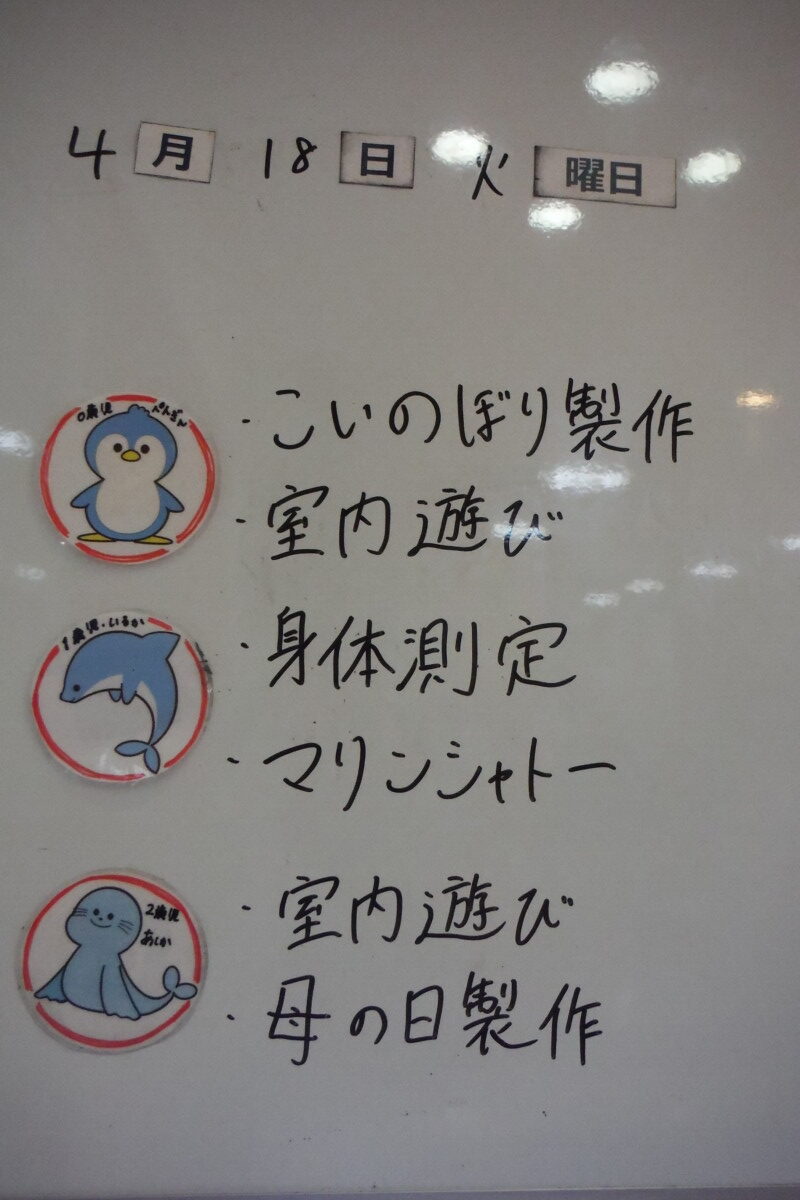 4月 18日 火曜日
0歳児 ぺんぎん
・こいのぼり製作
・室内遊び
1歳児・いるか
・身体測定
・マリンシャトー
2歳児
あしか
・室内遊び
・母の日製作